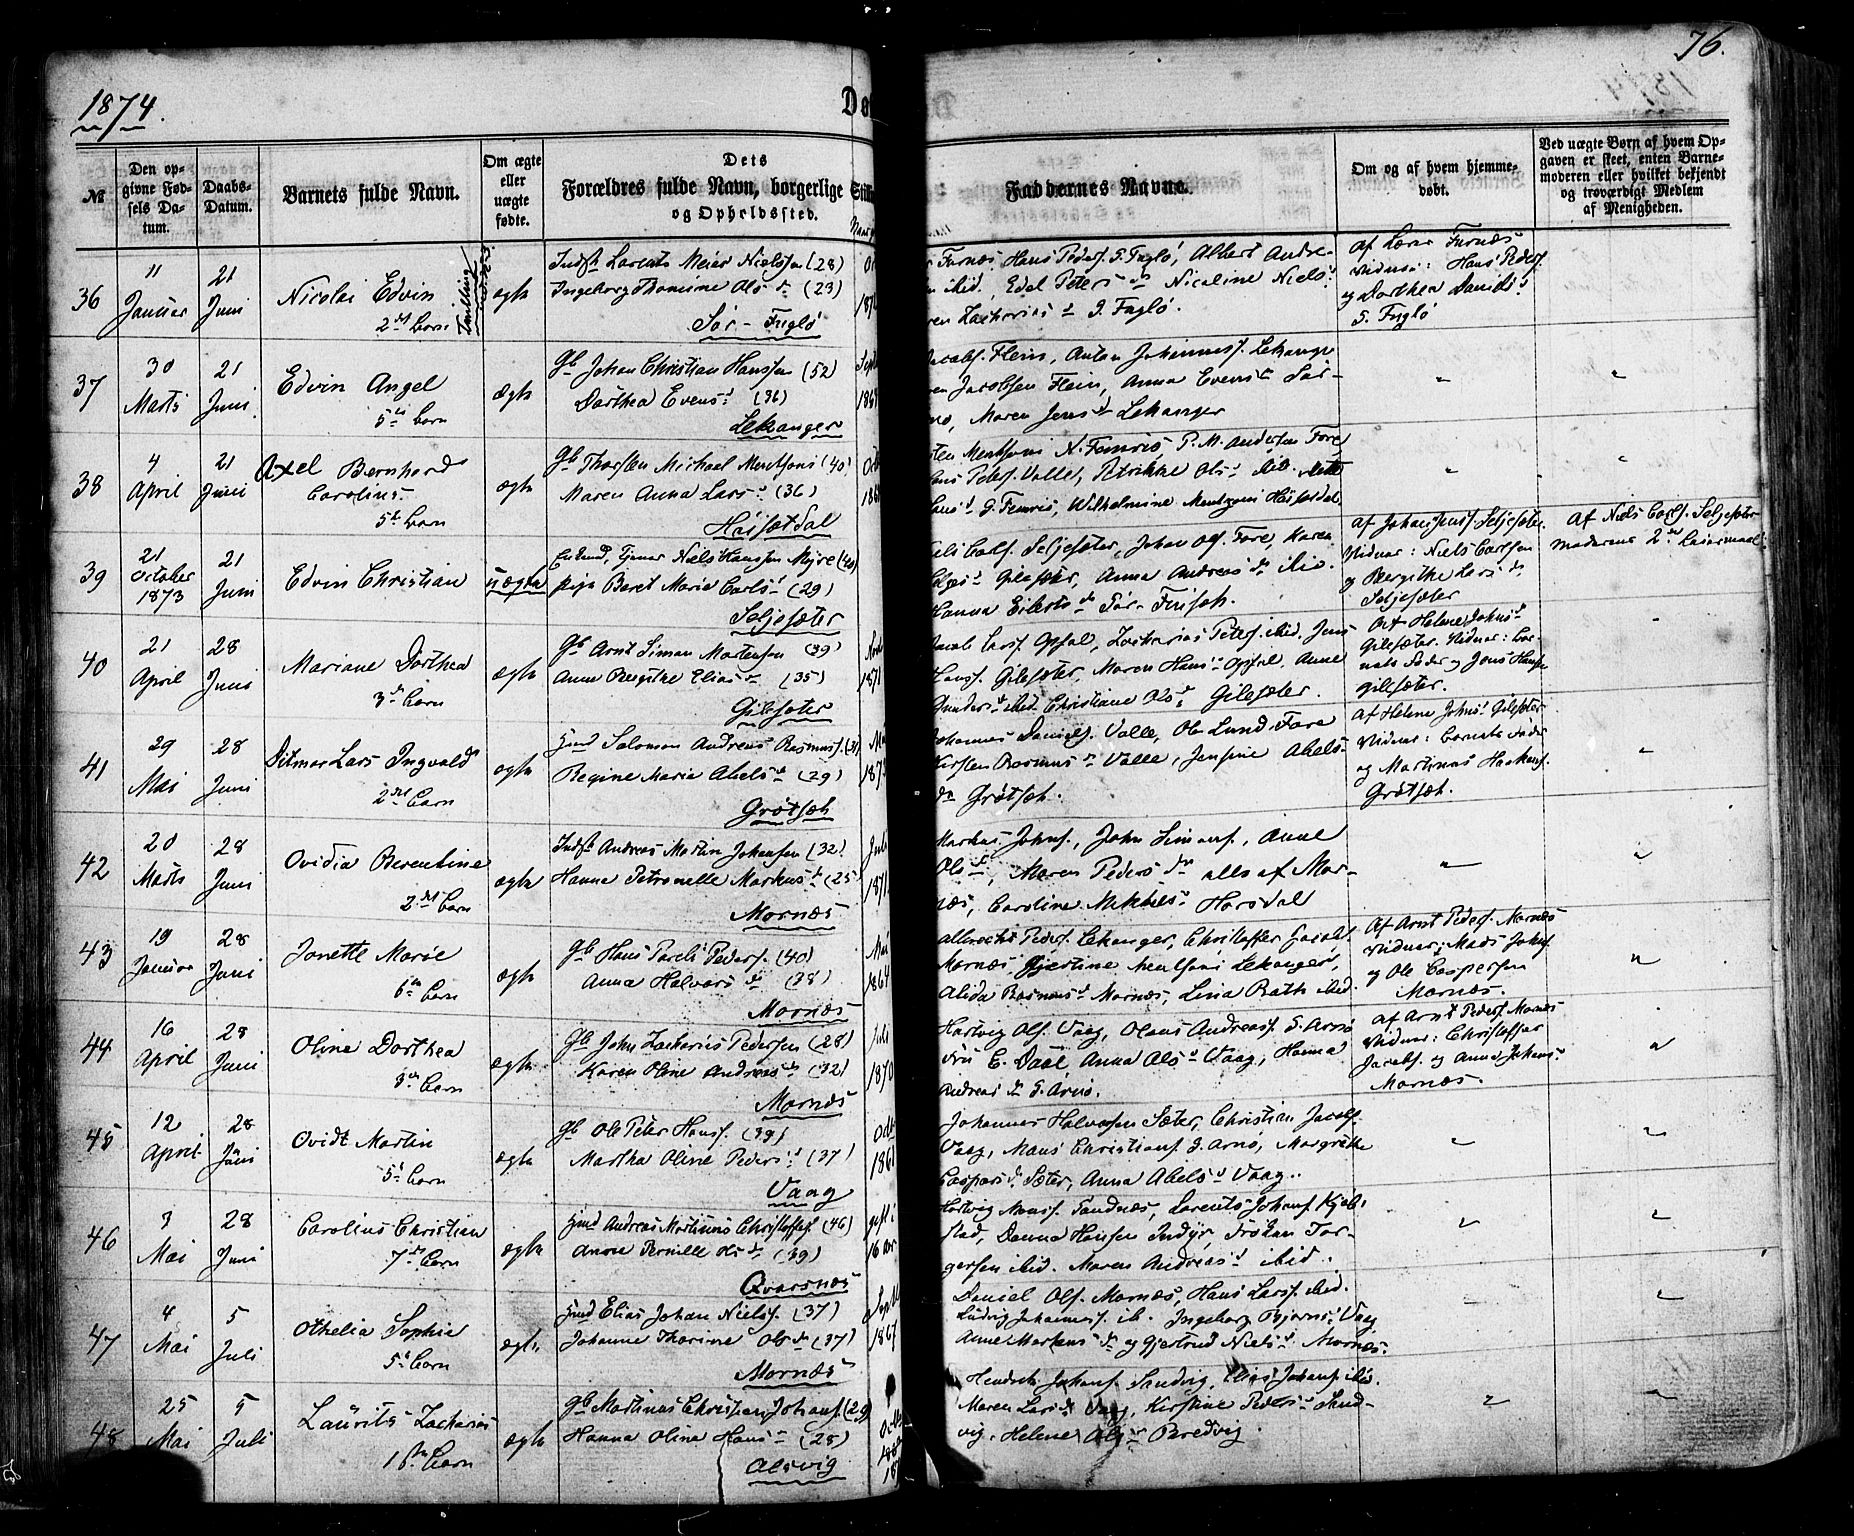 1874.
76.
Dø
№
Den opgivne Fødsels Datum.
Daabs-Datum.
Barnets fulde Navn.
Om ægte eller uægte fødte.
Dets
Forældres fulde Navn, borgerlige Still
og Opholdssted.
Faddernes Navne.
Om og af hvem hjemmedøbt.
Ved uægte Børn af hvem Opgaven er skeet, enten Barnemoderen eller hvilket bekjendt og troværdigt Medlem af Menigheden.
36
11 Januar
21 Juni
Nicolai Edvin
2det Barn
Tvilling
ægte
Indst Lorents Meier Nielssen (28)
Ingeborg Thomine Olsd (23)
Sør-Fuglø
Furnæs, Hans Peders. S. Fuglø, Albert Andre-
ibid, Edel Petersd Nicoline Niels
Zacharias d S. Fuglø.
af Lærer Furnæs
Vidner: Hans Peders.
og Dorthea Davids
S. Fuglø
37
30 Marts
21 Juni
Edvin Angel
5te Barn
ægte
Gb Johan Christian Hanssen (52)
Dorthea Evensd (36)
Lekanger
Jacobs. Flein, Anton Johanness. Lekanger
Jacobsen Flein, Anna Evensd Sør-
Maren Jensd Lekanger
38
4 April
21 Juni
Axel Bernhard
Carolius
5te Barn
ægte
Gb Thorsten Michael Mentsoni (40)
Maren Anna Larsd (36)
Haisætdal
Mentsoni N. Femris, P. M. Andersen Fore
Peders. Valle, Petrikke Olsd ibid.
G. Femris, Wilhelmine Mentzoni Haisetdal
39
21 October 1873
21 Juni
Edvin Christian
uægte
Enkemd, Tjener Niels Hanssen Myre (40)
pige Beret Marie Carlsd (29)
Seljesæter
Carls. Seljesæter, Johan Ols. Fore, Karen
Gilesæter, Anna Andreasd ibid.
Hanna Eilertsd Sør-
af Johan Jenss Seljesæter
Vidner: Niels Carlsen
og Bergithe Larsd
Seljesæter
Af Niels Carls. Seljesæter
moderens 2det Leiermaal
40
21 April
28 Juni
Mariane Dorthea
3die Barn
ægte
Gb Arnt Simon Mortensen (39)
Anne Bergithe Eliasd (35)
Gilesæter
1871
Jacob Larss Opsal, Zacharias Peters. ibid. Jens
Hanss. Gilesæter, Maren Hansd Opsal, Anne
Gundersd ibid. Christiane Olsd Gilesæter.
Af Helene Johnsd
Gilesæter. Vidner: Bar-
nets Fader og Jens Hanss
Gilesæter.
41
29 Mai
28 Juni
Ditmar Lars Ingvald
2det Barn
ægte
Hmd Salomon Andreas Rasmuss.
Regine Marie Abelsd (29)
Grøtsøh
Johannes Daniels. Valle, Ole Lund Fore
Kirsten Rasmusd Valle, Jensine Abels-
dr Grøtsøh.
Af Helene Johnsd Gilesæter
Vidner: Barnets Fader
og Martinus Haakons.
Grøtsøh.
42
20 Marts
28 Juni
Ovidia Berentine
2det Barn
ægte
Indst Andreas Martin Johansen (32)
Hanna Petronelle Markusd (25)
Mornæs
Markus Johns., John Simons., Anne
Olsd, Maren Pedersdr alle af Mor-
næs, Caroline Mikkelsd Horsdal
43
19 Januar
28 Juni
Janette Marie
6te Barn
ægte
Gb Hans Pareli Peders. (40)
Anna Halvorsd (38)
Mornæs
1864
Albrecht Peders. Lekanger, Christoffer Jacobs.
Mornæs, Gjertine Mentsoni Lekanger,
Alida Rasmusd Mornæs, Lina Rath ibid.
Af Arnt Peders. Mornæs
Vidner: Mads Johns.
og Ole Caspersen
Mornæs.
44
16 April
28 Juni
Oline Dorthea
3die Barn
ægte
Gb John Zacharias Pedersen (28)
Karen Oline Andreasd (32)
Mornæs
Juli 1870
Hartvig Ols. Vaag, Olaus Andreass. S. Arnø
E. Daal Anna Olsd Vaag, Hanna
Andreasd S. Arnø.
af Arnt Peders. Mornæs
Vidner: Christoffer
Jacobs. og Anna Johans-
Mornæs.
45
12 April
28 Juni
Ovidt Martin
5te Barn
ægte
Gb Ole Peter Hanss. (39)
Martha Oline Pedersd (37)
Vaag
Johannes Halvorsen Sæter, Christian Jacobs.
Vaag, Mons Christians S. Arnø, Margrethe
Caspersd Sæter, Anna Abelsd Vaag.
46
3 Mai
28 Juni
Carolius Christian
7de Barn
ægte
Hmd Andreas Martinus Christoffers (46)
Anne Pernille Olsd (39)
Qvarsnæs
gift i 16 Aar
Hartvig Monss. Sandnæs, Lorents Johans. Kjel-
stad, Danna Hansen Indyr,
ibid. Maren Andreasd ibid.
47
4 Mai
5 Juli
Othelia Sophie
5te Barn
ægte
Hmd Elias Johan Nielss. (37)
Johanne Thorine Olsd (37)
Mornæs
Sept. 1867
Daniel Ols. Mornæs, Hans Larss. ibid.
Ludvig Johannes. ib. Ingeborg Bjørnsd Vaag,
Anne Markusd og Gjertrud Nielsd Mornæs.
48
25 Mai
5 Juli
Laurits Zacharias
1ste Barn
ægte
Gb Martinus Christian Johans. (29)
Hanna Oline Hansd (28)
Alsvig
Hendrik Johans. Sandvig, Elias Johans. ibid.
Maren Larsd Vaag, Kirstine Pedersd Sand-
vig, Helene Olsd Bredvig.